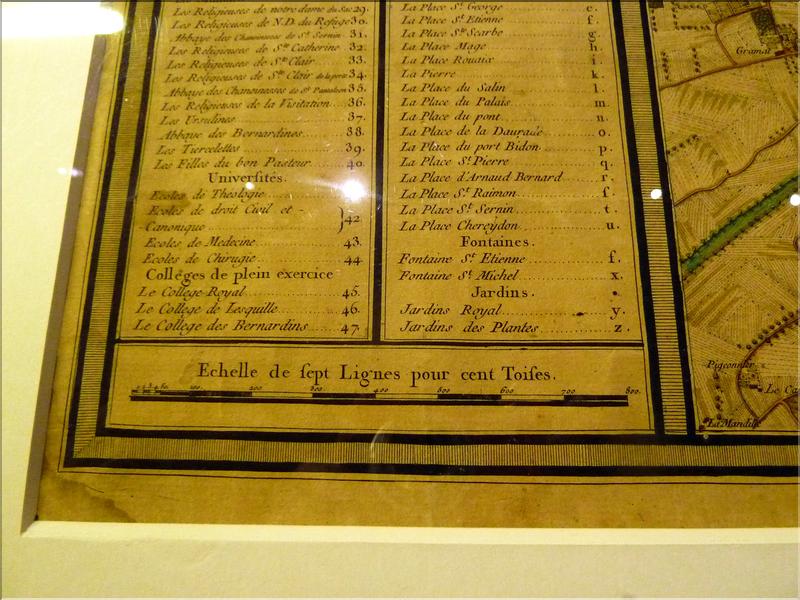 Les Religieuses de notre dame du Sac 29.
Les Religieuses de N.D. du Refuge 30.
Abbaye des Chanoinesse de St. Sernin 31.
Les Religieuses de Ste. Catherine 32.
Les Religieuses de Ste. Clair 33.
Les Religieuses de Ste. Clair de la porte 34.
Abbaye des Chanoinesses de St. Pantaleon 35.
Les Religieuses de la Visitation 36.
Les Ursulines 37.
Abbaye des Bernardines 38.
Les Tiercelettes 39.
Les Filles du bon Pasteur 40.
Universités.
Ecoles de Théologie
Ecoles de droit Civil et -
- Canonique } 42
Ecoles de Medecine 43.
Ecoles de Chirugie 44
Colléges de plein exercice
Le College Royal 45.
Le College de Lesquille 46.
Le Collége des Bernardins 47.
La Place St. George e.
La Place St. Etienne f.
La Place Ste. Scarbe g.
La Place Mage h.
La Place Rouaix i.
La Pierre k.
La Place du Salin l.
La Place du Palais m.
La Place du pont n.
La Place de la Daurade o.
La Place du port Bidon p.
La Place St. Pierre q.
La Place d'Arnaud Bernard r.
La Place St. Raimon ſ.
La Place St. Sernin t.
La Place Chereydon u.
Fontaines.
Fontaine St. Etienne ſ.
Fontaine St. Michel x.
Jardins.
Jardins Royal y.
Jardins des Plantes z.
Echelle de ſept Lignes pour cent Toiſes.
100. 200 300. 400 500 600 700 800.
Gramat
Pigeonnier
Le Ca
La Mandille